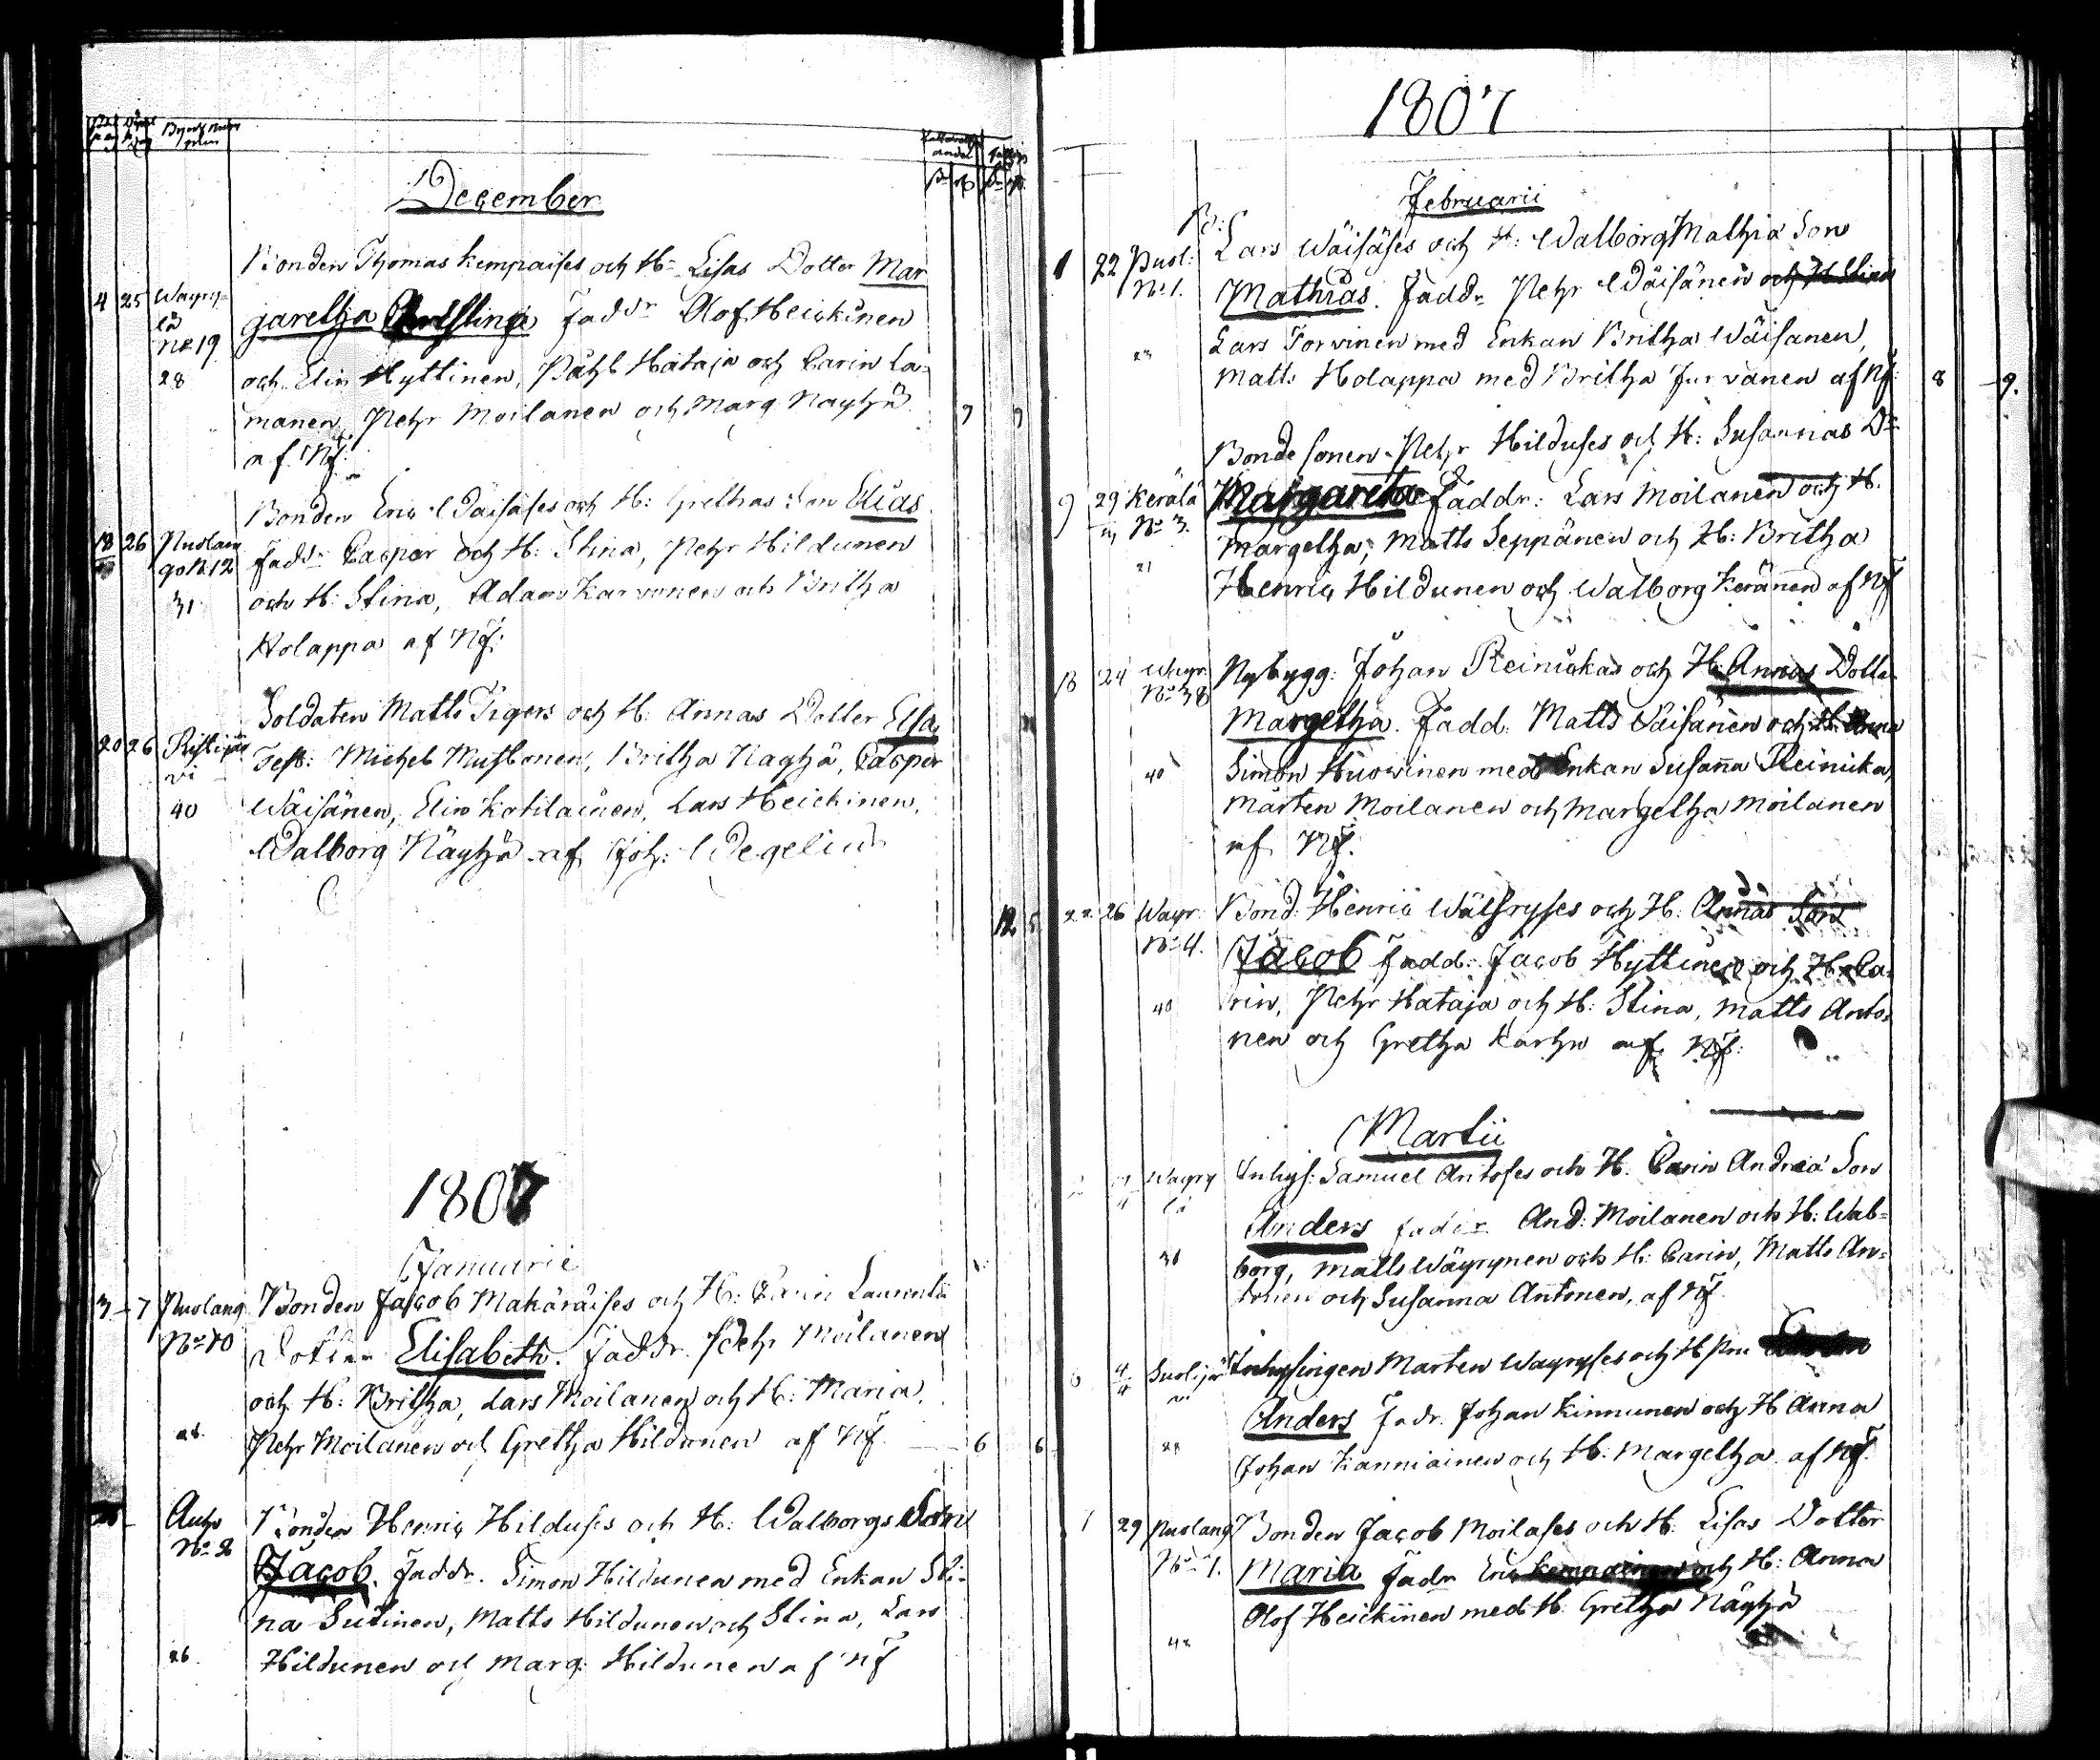 December
Bonden Thomas Kempaises och H: Lisas Dotter Mar
4 25 Wäyry=
lä
No 19
garetha Fadd:r Olof Heickinen
28
och Elin Hyttinen, Påhl Hataja och Carin La=
manen, Pehr Moilanen och Marg. Näyhä 9 9
af Nf.
Bonden Eric Wäisäses och H: Grethas Son Elias
18 26 Puolan
go No 12
Fadd:r Caspar och H: Stina, Pehr Hildunen
31
och H: Stina, Adam Karvonen och Britha
Holappa af Nf:
Soldaten Matts Tigers och H: Annas Dotter Elsa
20 26 Ristijär
vi
Test: Michel Mustonen, Britha Näyhä, Caspar
40
Wäisänen, Elin Kotilainen, Lars Heickinen,
Walborg Näyhä af Joh: Wegelius
12 5
1807
Januarii
3 7 Puolang
No 10
Bonden Jacob Makäräises och H: Carin Laurentii
Dotter Elisabeth. Faddr. Pehr Moilanen
och H: Britha, Lars Moilanen och H: Maria,
28.
Pehr Moilanen och Gretha Hildunen af Nf. 6 6
Auho
No 2
Bonden Henric Hilduses och H: Walborgs Son
Jacob. Faddr. Simon Hildunen med Enkan Sti=
na Sutinen, Matts Hildunen och Stina, Lars
26.
Hildunen och Marg: Hildunen af Nf
1807
Februarii
1 22 Puol:
No 1.
B: Lars Wäisäses och H: Walborg Mathiæ Son
Mathias. Faddr Pehr Wäisänen och H Stina
23
Lars Torvinen med Enkan Britha Wäisänen,
Matts Holappa med Britha Jurvanen af Nf: 8 9.
Bonde sonen Pehr Hilduses och H: Susannas Dr
9 29 Kerälä
No 3.
Margareta Faddr: Lars Moilanen och H.
21
Margetha, Matts Seppänen och H: Britha
Henric Hildunen och Walborg Keränen af Nf
18 24 Wäyr
No 38
Nybygg: Johan Reinickas och H: Annas Dotter
Margetha. Fadd: Matts Väisänen och H: Anna
40
Simon Huovinen med Enkan Susanna Reinicka,
Mårten Moilanen och Margetha Moilanen
af Nf.
22 26 Wäyr.
No 4.
Bond: Henric Wäyryses och H: Annas Son
Jacob Fadd: Jacob Hyttinen och H: Ca=
40
rin, Pehr Hataja och H: Stina, Matts Anto=
nen och Gretha Karhu af Nf:
Martii
Wäyry
lä
Inhys: Samuel Antoses och H. Carin Andreæ Son
Anders faddr And: Moilanen och H: Wal=
30
borg, Matts Wäyrynen och H: Carin, Matts An=
tonen och Susanna Antonen, af Nf.
6 4/4 Suolijär
vi
Inhysingen Mårten Wäyryses och H
Anders Fadr. Johan Kinnunen och H Anna
28
Johan Kanniainen och H: Margetha af Nf.
1 29 Puolang
No 1.
Bonden Jacob Moilases och H. Lisas Dotter
Maria Fadr Eric Kempainen och H: Anna
Olof Heickinen med H. Gretha Näyhä